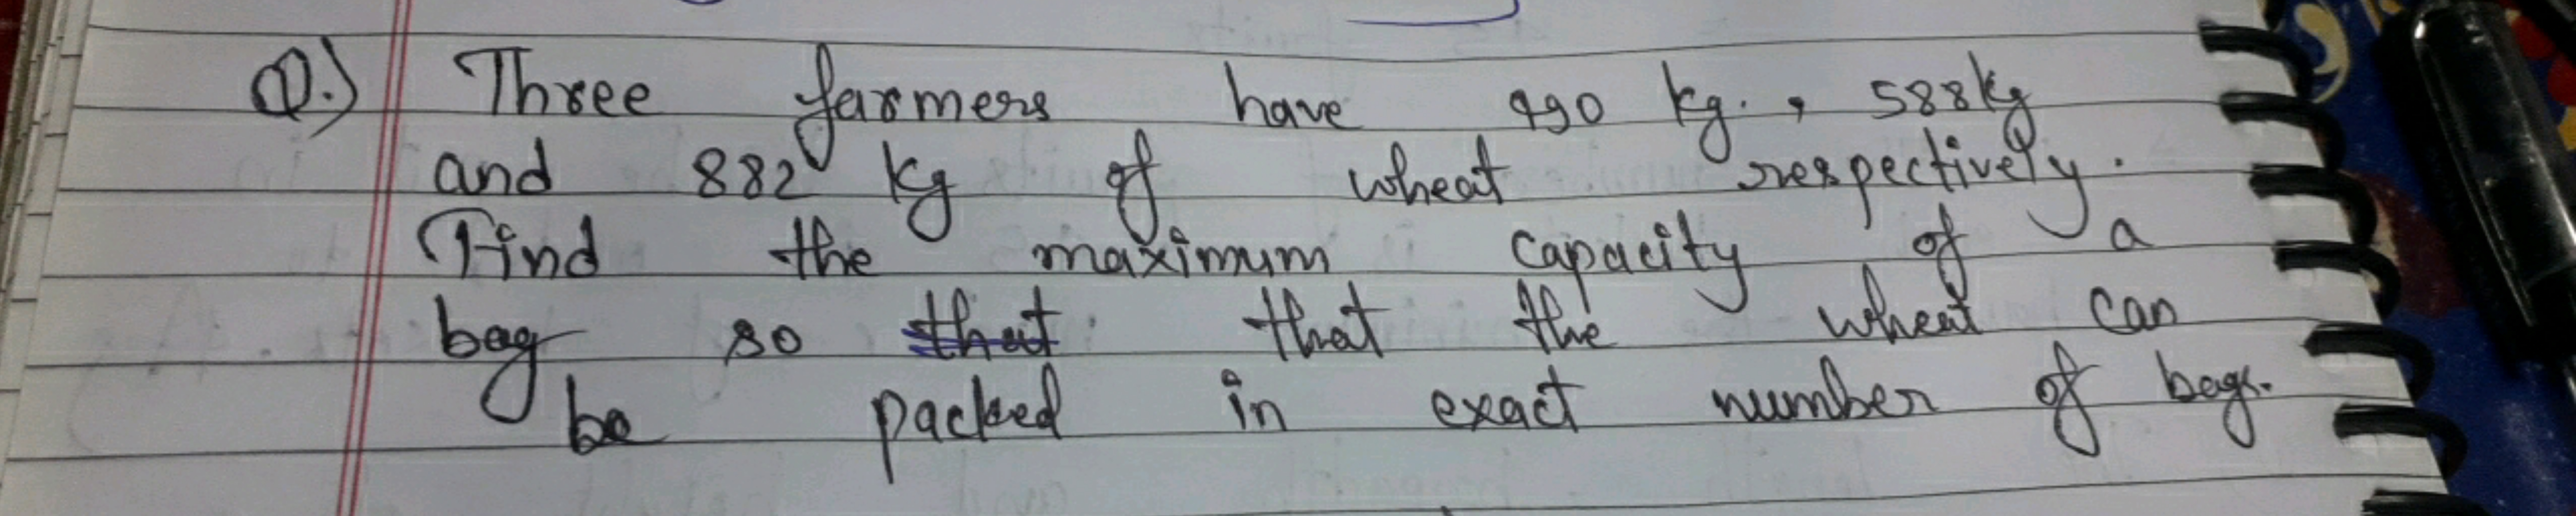 Q.) Three farmers have 490 kg. , 588kg
and 882 kg of wheat respectively.
Find the maximum capacity of a
bag so that that the wheat can
be packed in exact number of bags.